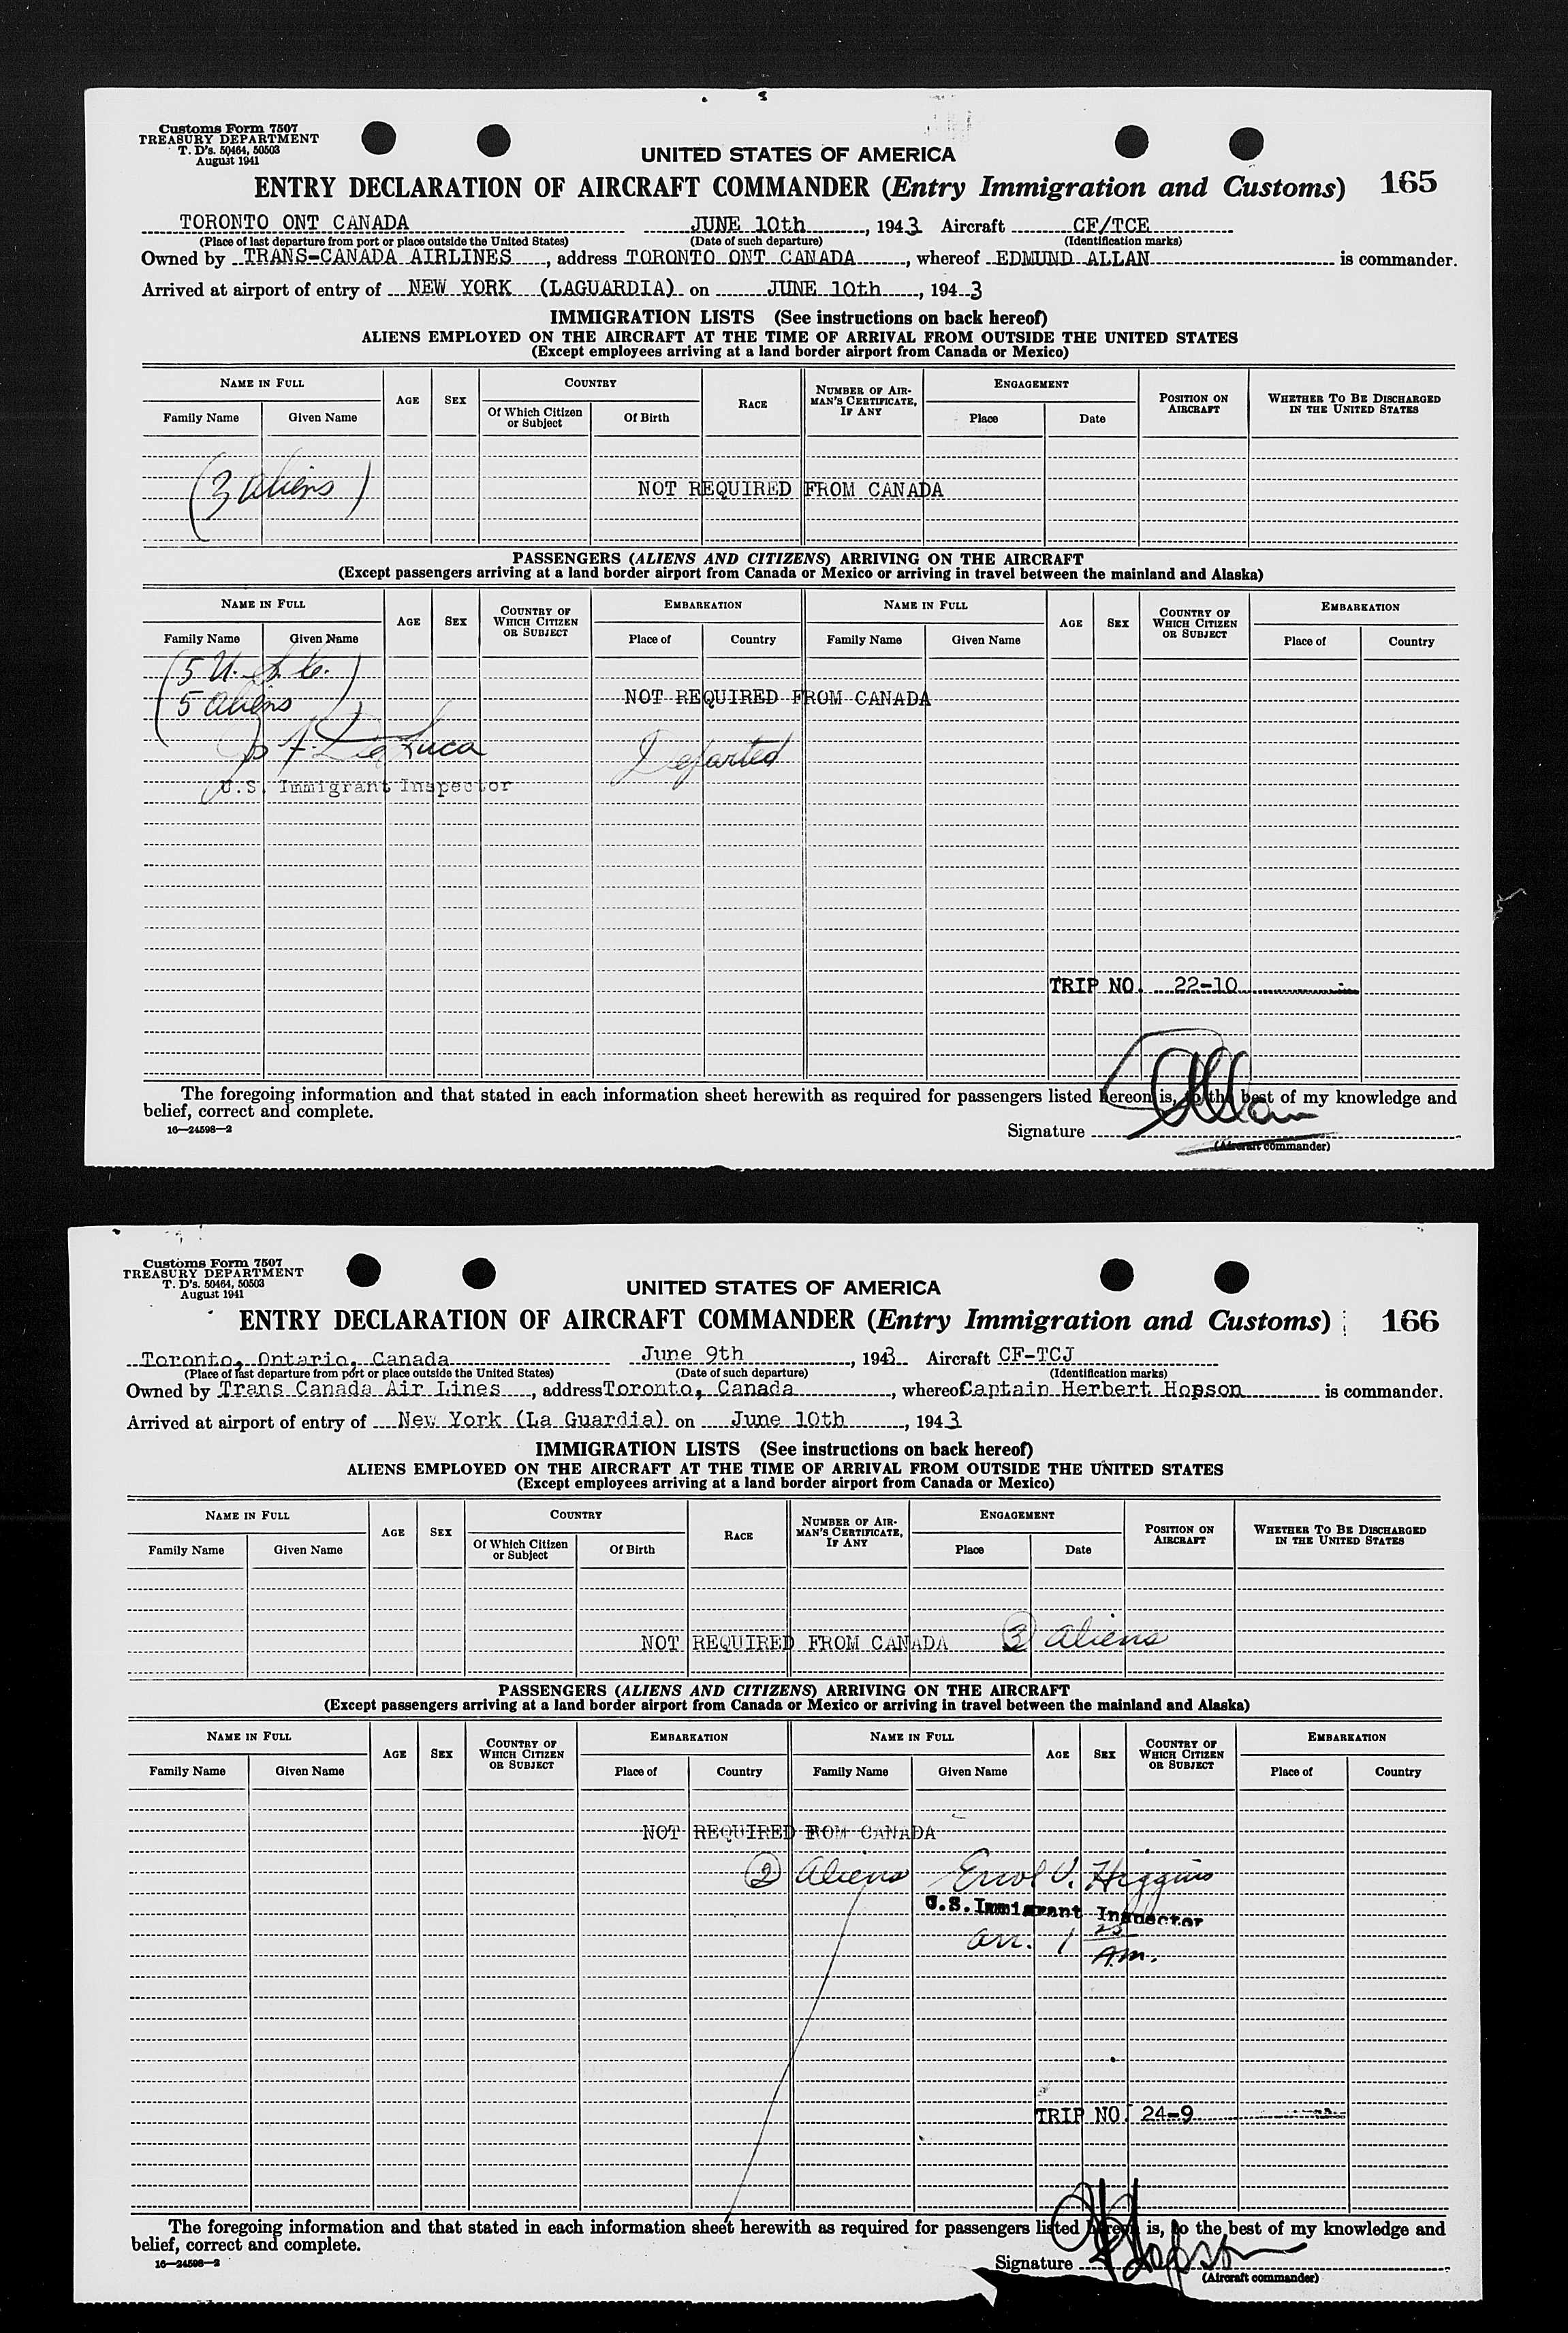 Customs Form 7507
TREASURY DEPARTMENT
T. D's. 50464, 50503
August 1941
UNITED STATES OF AMERICA
ENTRY DECLARATION OF AIRCRAFT COMMANDER (Entry Immigration and Customs) 165
TORONTO ONT CANADA JUNE 10th, 1943 Aircraft CF/TCE
(Place of last departure from port or place outside the United States) (Date of such departure) (Identification marks)
Owned by TRANS-CANADA AIRLINES, address TORONTO ONT CANADA, whereof EDMUND ALLAN is commander.
Arrived at airport of entry of NEW YORK (LAGUARDIA) on JUNE 10th, 1943
IMMIGRATION LISTS (See instructions on back hereof)
ALIENS EMPLOYED ON THE AIRCRAFT AT THE TIME OF ARRIVAL FROM OUTSIDE THE UNITED STATES
(Except employees arriving at a land border airport from Canada or Mexico)
NAME IN FULL AGE SEX COUNTRY RACE NUMBER OF AIRMAN'S CERTIFICATE, IF ANY ENGAGEMENT POSITION ON AIRCRAFT WHETHER TO BE DISCHARGED IN THE UNITED STATES
Family Name Given Name Of Which Citizen or Subject Of Birth Place Date
(3 Aliens) NOT REQUIRED FROM CANADA
PASSENGERS (ALIENS AND CITIZENS) ARRIVING ON THE AIRCRAFT
(Except passengers arriving at a land border airport from Canada or Mexico or arriving in travel between the mainland and Alaska)
NAME IN FULL AGE SEX COUNTRY OF WHICH CITIZEN OR SUBJECT EMBARKATION NAME IN FULL AGE SEX COUNTRY OF WHICH CITIZEN OR SUBJECT EMBARKATION
Family Name Given Name Place of Country Family Name Given Name Place of Country
(5 U. S. C.)
5 Aliens NOT REQUIRED FROM CANADA
De Luca Departed
U.S. Immigrant Inspector
TRIP NO. 22-10
The foregoing information and that stated in each information sheet herewith as required for passengers listed hereon is, to the best of my knowledge and
belief, correct and complete.
16—24598—2
Signature Allan
(Aircraft commander)
Customs Form 7507
TREASURY DEPARTMENT
T. D's. 50464, 50503
August 1941
UNITED STATES OF AMERICA
ENTRY DECLARATION OF AIRCRAFT COMMANDER (Entry Immigration and Customs) 166
Toronto, Ontario, Canada June 9th, 1943 Aircraft CF-TCJ
(Place of last departure from port or place outside the United States) (Date of such departure) (Identification marks)
Owned by Trans Canada Air Lines, address Toronto, Canada, whereof Captain Herbert Hopson is commander.
Arrived at airport of entry of New York (La Guardia) on June 10th, 1943
IMMIGRATION LISTS (See instructions on back hereof)
ALIENS EMPLOYED ON THE AIRCRAFT AT THE TIME OF ARRIVAL FROM OUTSIDE THE UNITED STATES
(Except employees arriving at a land border airport from Canada or Mexico)
NAME IN FULL AGE SEX COUNTRY RACE NUMBER OF AIRMAN'S CERTIFICATE, IF ANY ENGAGEMENT POSITION ON AIRCRAFT WHETHER TO BE DISCHARGED IN THE UNITED STATES
Family Name Given Name Of Which Citizen or Subject Of Birth Place Date
NOT REQUIRED FROM CANADA 3 Aliens
PASSENGERS (ALIENS AND CITIZENS) ARRIVING ON THE AIRCRAFT
(Except passengers arriving at a land border airport from Canada or Mexico or arriving in travel between the mainland and Alaska)
NAME IN FULL AGE SEX COUNTRY OF WHICH CITIZEN OR SUBJECT EMBARKATION NAME IN FULL AGE SEX COUNTRY OF WHICH CITIZEN OR SUBJECT EMBARKATION
Family Name Given Name Place of Country Family Name Given Name Place of Country
NOT REQUIRED FROM CANADA
2 Aliens Errol V. Higgins
U.S. Immigrant Inspector
arr. 1 25 A.M.
TRIP NO. 24-9
The foregoing information and that stated in each information sheet herewith as required for passengers listed hereon is, to the best of my knowledge and
belief, correct and complete.
16—24598—2
Signature H Hopson
(Aircraft commander)